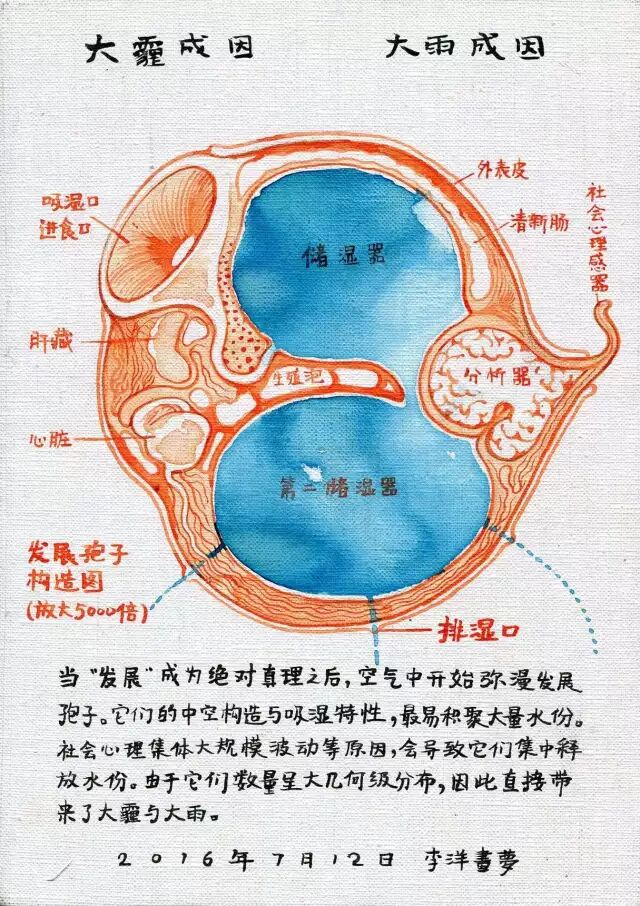 大霾成因 大雨成因
外表皮
吸湿口
进食口
清新肠
社会心理感器
储湿器
肝臓
生殖泡
分析器
心脏
第二储湿器
发展孢子
构造图
(放大5000倍)
排湿口
当"发展"成为绝对真理之后,空气中开始弥漫发展
孢子。它们的中空构造与吸湿特性,最易积聚大量水份。
社会心理集体大规模波动等原因,会导致它们集中释
放水份。由于它们数量呈大几何级分布,因此直接带
来了大霾与大雨。
2016年7月12日 李洋畫夢